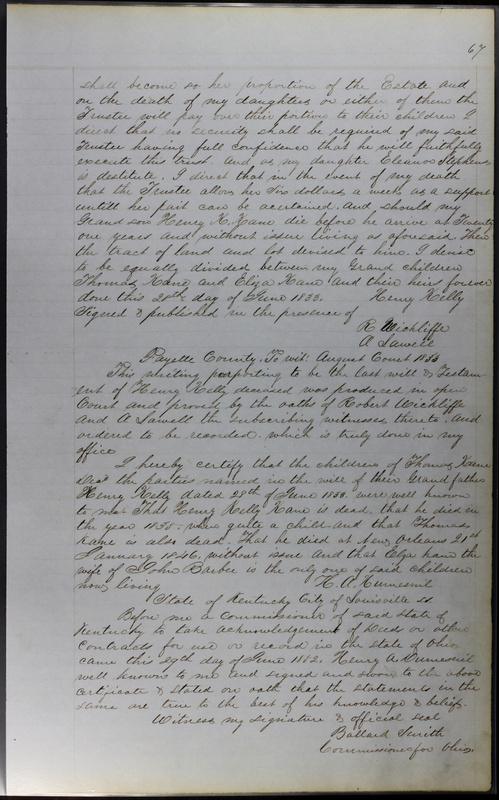 67
shall become so her proportion of the Estate, and
on the death of my daughters or either of them the
Trustee will pay over their portions to their children I
direct that no security shall be required of my said
Trustee having full confidence that he will faithfully
execute this trust. And as my daughter Eleanor Stephens
is destitute. I direct that in the event of my death
that the Trustee allow her Six dollars a week as a support
untill her part can be acertained. And should my
Grand son Henry K. Kane die before he arrive at Twenty
one years and without issue living as aforesaid. Then
the tract of land and lot devised to him. I devise
to be equally divided between my Grand children
Thomas Kane and Elza Kane and their heirs forever
done this 28th day of June 1833. Henry Kelly
Signed & published in the presence of
R Wickliffe
A Sawell
Fayette County. To wit: August Court 1833
This writing purporting to be the last will & Testam
ent of Henry Kelly deceased was produced in open
Court and proven by the oaths of Robert Wickliffe
and A Sawell the subscribing witnesses thereto. and
ordered to be recorded. which is truly done in my
office
I hereby certify that the children of Thomas Kane
Decd the parties named in the will of their Grand father
Henry Kelly dated 28th of June 1833. were well known
to me. That Henry Kelly Kane is dead, that he died in
the year 1835. when quite a child. and that Thomas
Kane is also dead. That he died at New Orleans 21st
January 1846, without issue and that Elza Kane the
wife of John Barbee is the only one of said children
now living H. A. Dumesnil
State of Kentucky City of Louisville ss.
Before me a commissioner of said State of
Kentucky to take acknowledgement of Deeds or other
contracts for use or record in the state of Ohio
came this 29th day of June 1852. Henry A. Dumesnil
well known to me and signed and sworn to the above
certificate & stated on oath that the statements in the
same are true to the best of his knowledge & belief.
Witness my signature & official seal
Ballard Smith
Commissioner for Ohio.